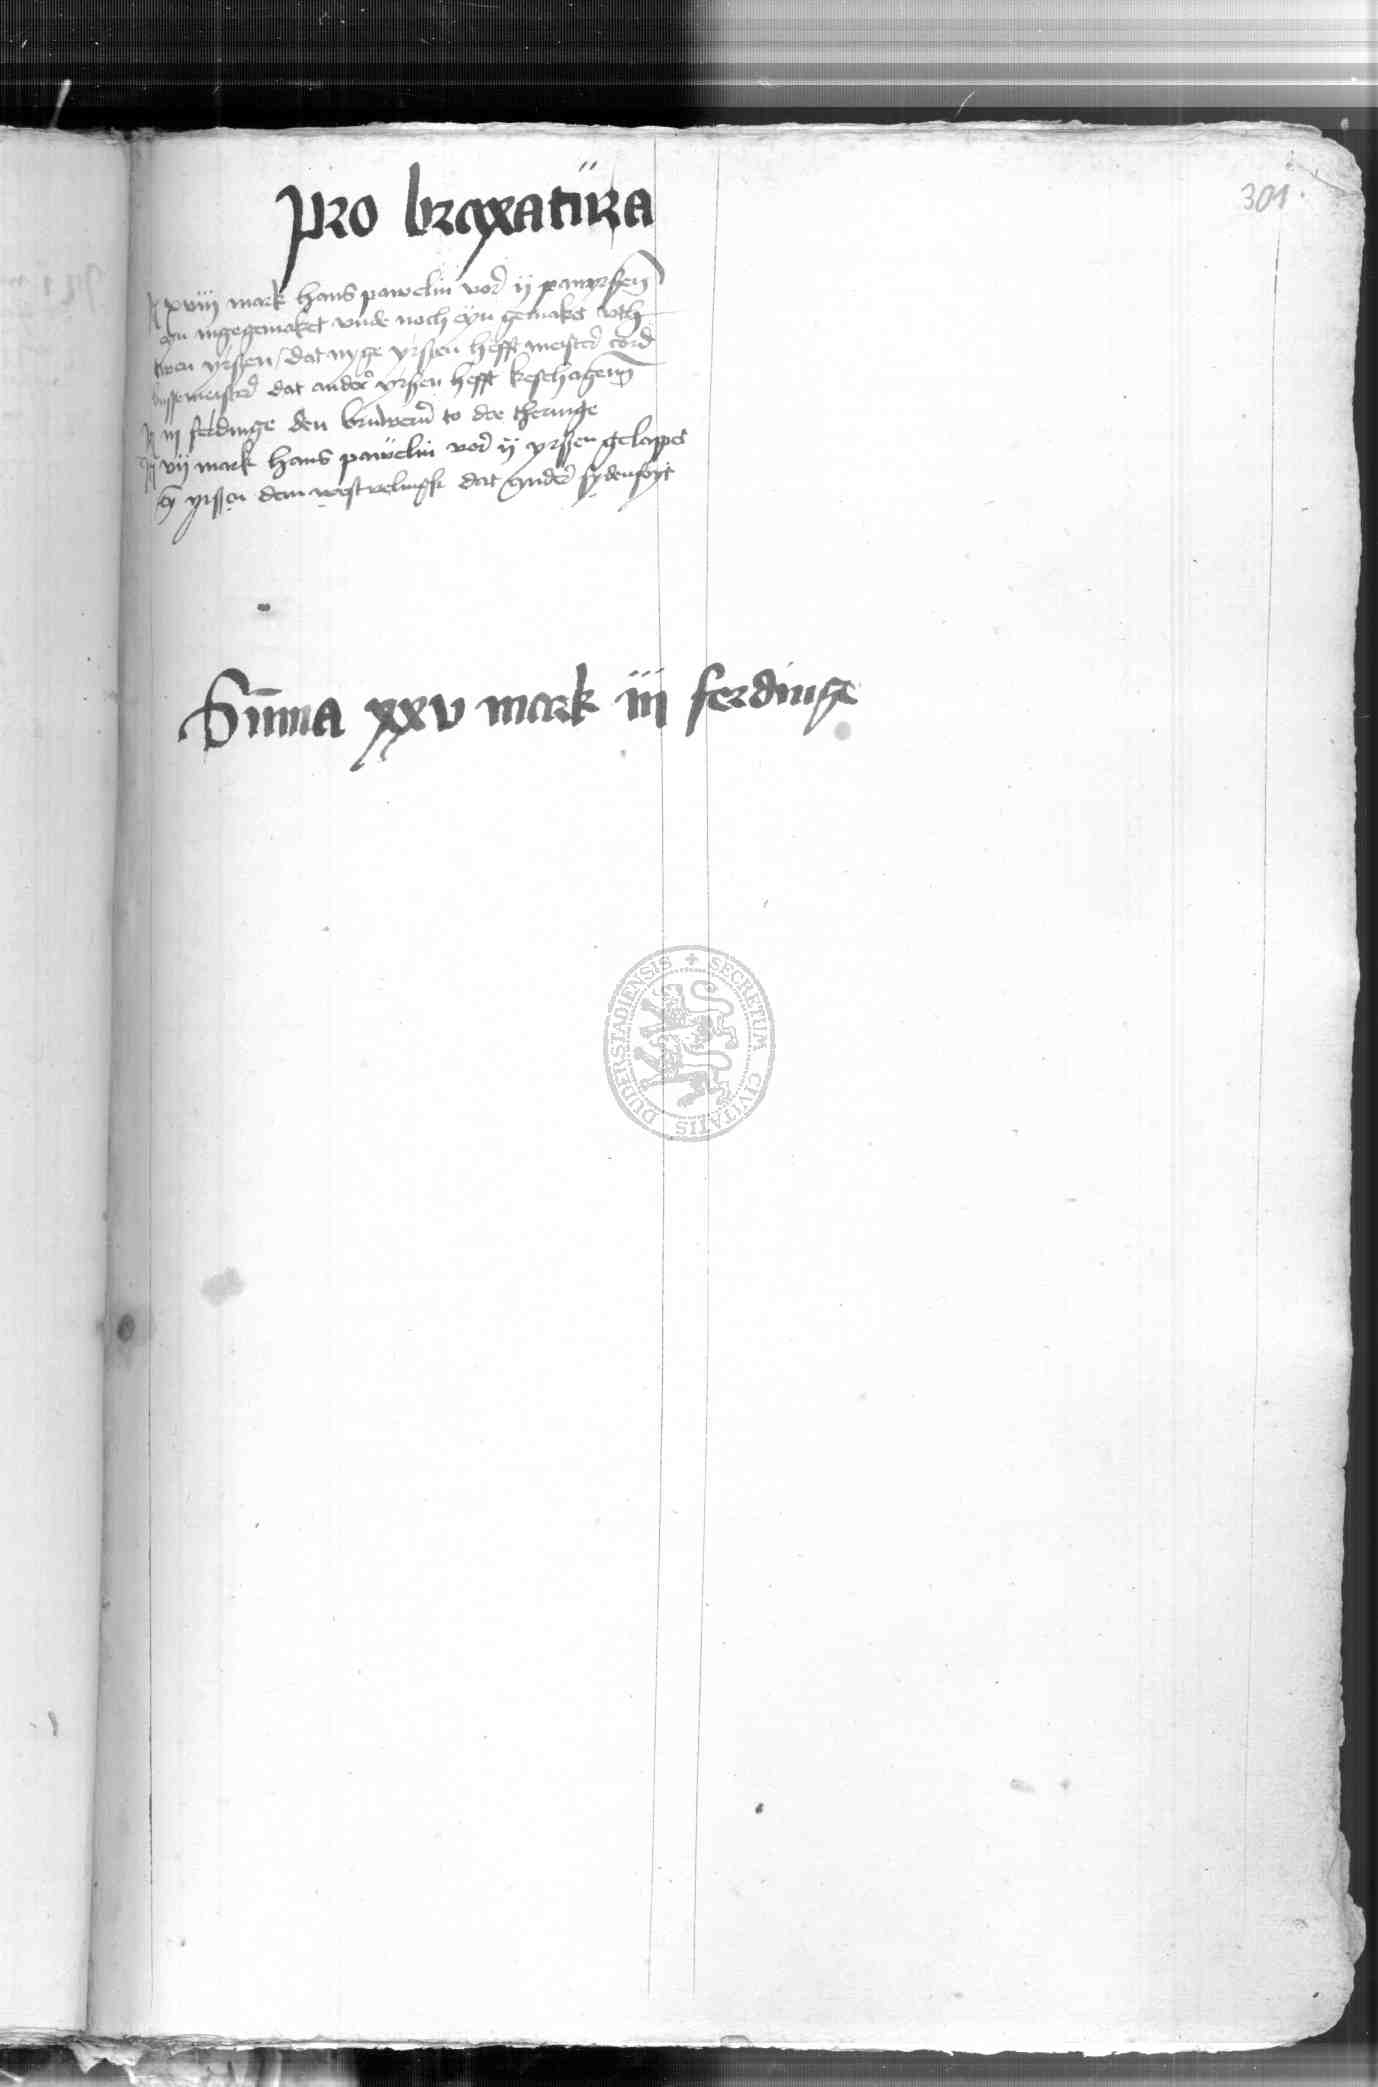 301
Pro braxatura
xviii mark hans pawelin vor ii panyrssen
eyn nygegemaket vnde noch eyn gemaket vth
twen yrssen / dat nyge yrssen hefft meister cord
bussemeister dat ander yrssen hefft keschagen
iii ferdinge den bruwern to der theringe
vii mark hans pawelin vor ii yrssen gelappet
eyn yrssen dem dat ander
Summa xxv mark iii ferdinge
SECRETUM CIVITATIS DUDERSTADIENSIS